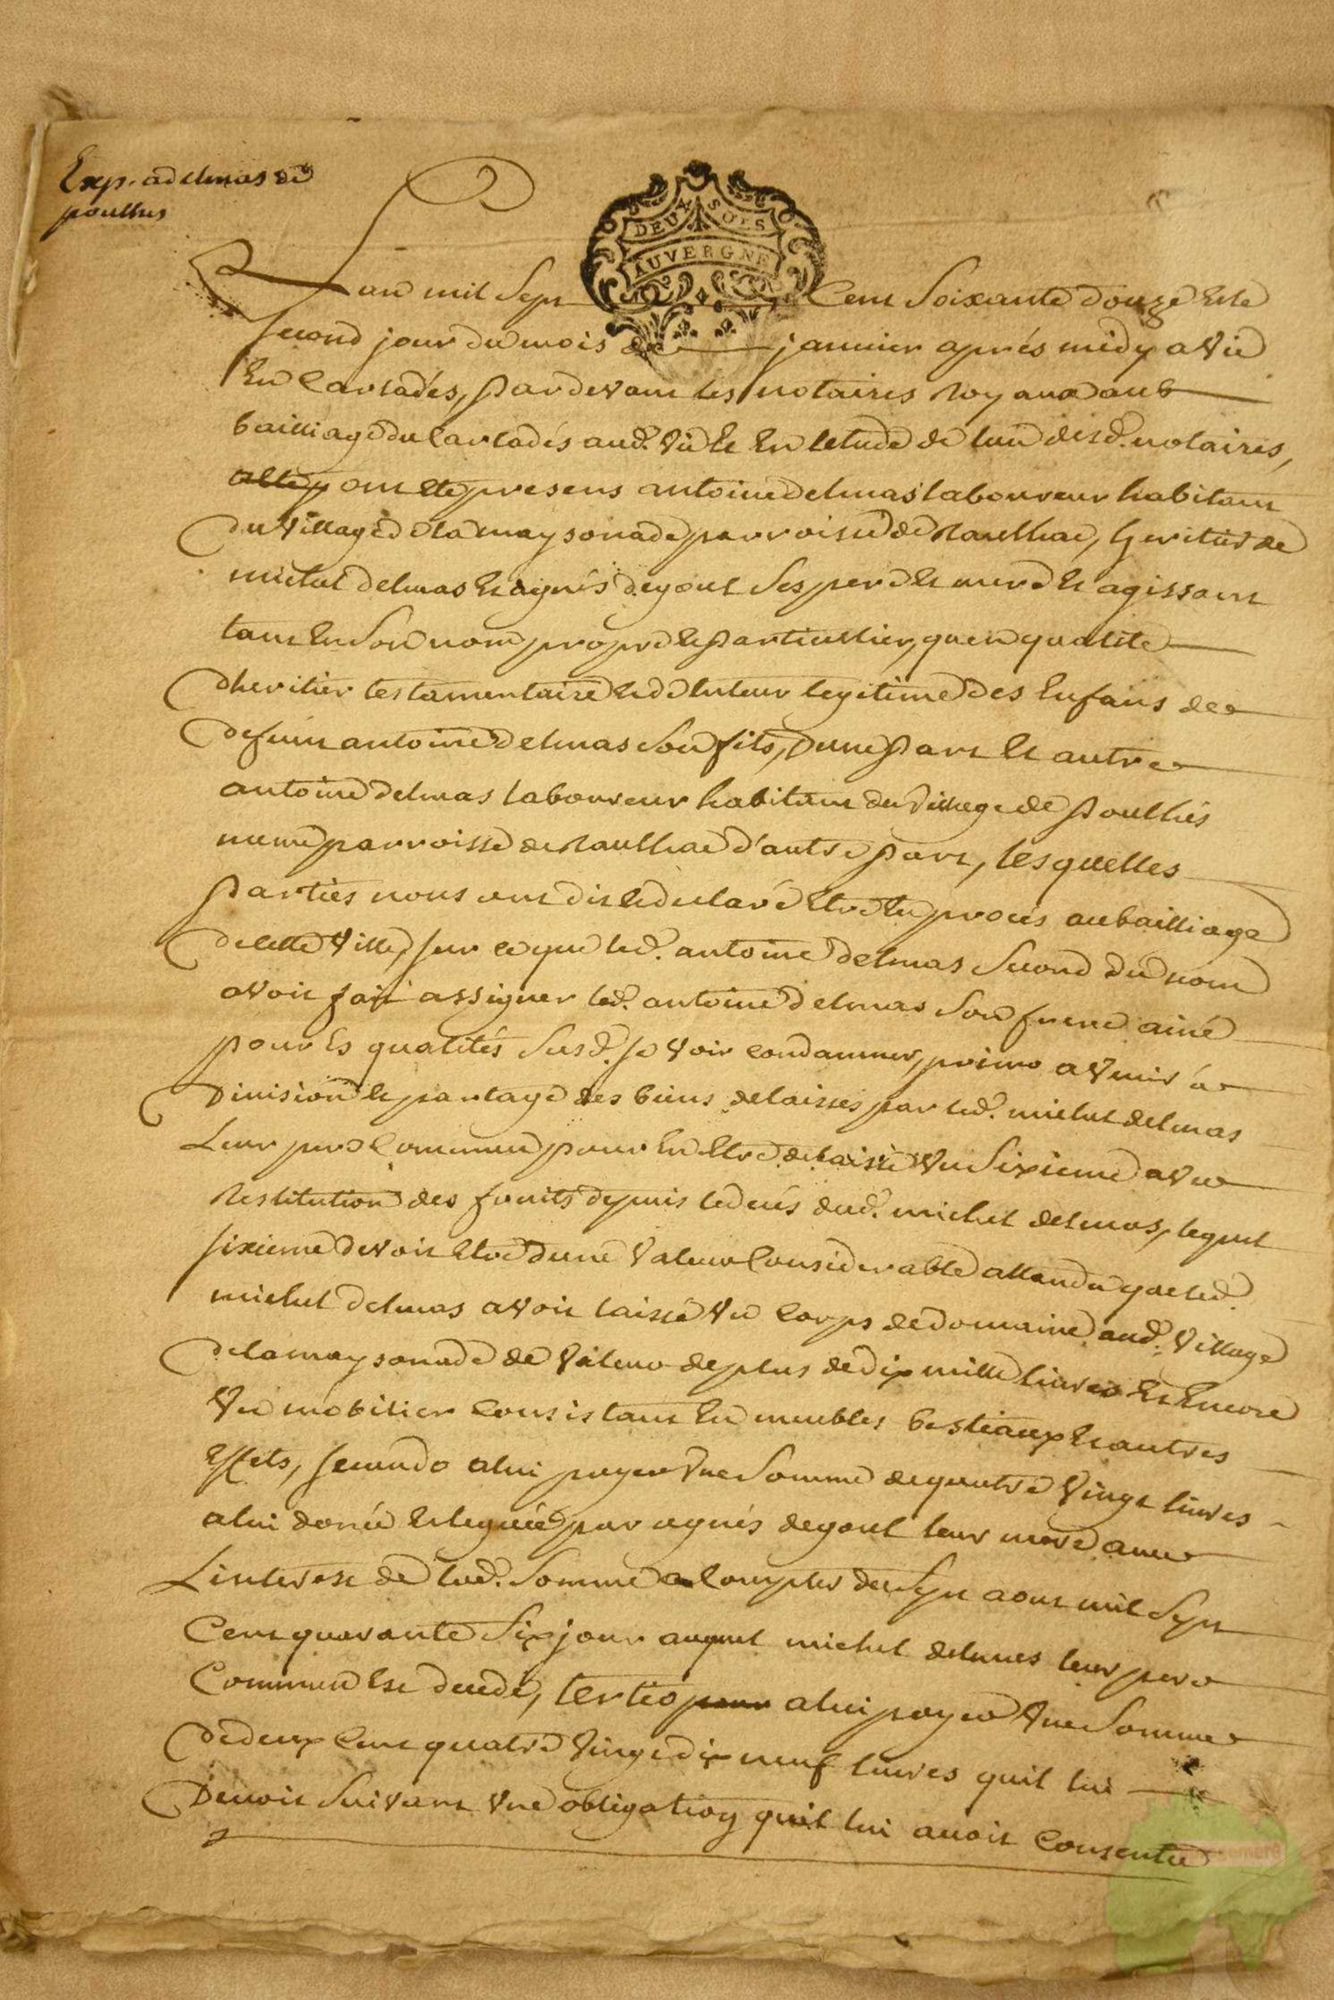 Exp. a delmas de
poulhes
DEUX SOLS
AUVERGNE
Lan mil sept Cent soixante douze et le
second jour du mois de janvier aprés midy a vic
En Carladés, pardevant les notaires Royaux au
bailliage du Carladés aud. vic et En letude de lun desd. notaires,
ont ete presens antoine delmas laboureur habitant
du village de lamaysonade parroisse de Raulhac, heritier de
michel delmas et agnés degoul ses pere et mere et agissant
tant En son nom propre et particullier, quen qualité
dheritier testamentaire et de tuteur legitime des Enfans de
defunt antoine delmas son fils, dune part et autre
antoine delmas laboureur habitant du village de Poulhés
meme parroisse de Raulhac d'autre part, lesquelles
parties nous ont dit et declaré Etre En procés au bailliage
de cette ville, sur ce que led. antoine delmas second du nom
avoit fait assigner led. antoine delmas son frere ainé
pour Es qualités susd. se voir condamner, primo a venir á
division et partage des biens delaissés par led. michel delmas
Leur pere Commun pour En Etre delaissé un sixieme avec
Restitution des fruits depuis ledecés dud. michel delmas, lequel
sixieme devoit Etre dune valeur Considerable attendu que led.
michel delmas avoit laissé un Corps de domaine aud. village
de lamaysonade de valeur de plus de dix mille livres Et Encore
un mobilier Consistant En meubles bestiaux et autres
effets, secundo a lui payer une somme de quatre vingt livres
a lui donée et leguée par agnés degoul leur mere avec
Linterest de lad. somme a Compter du sept aout mil sept
Cent quarante six jour auquel michel delmas leur pere
Commun Est decedé, tertio a lui payer une somme
de deux Cent quatre vingt dix neuf livres quil lui
devoit suivant une obligation quil lui avoit Consentie